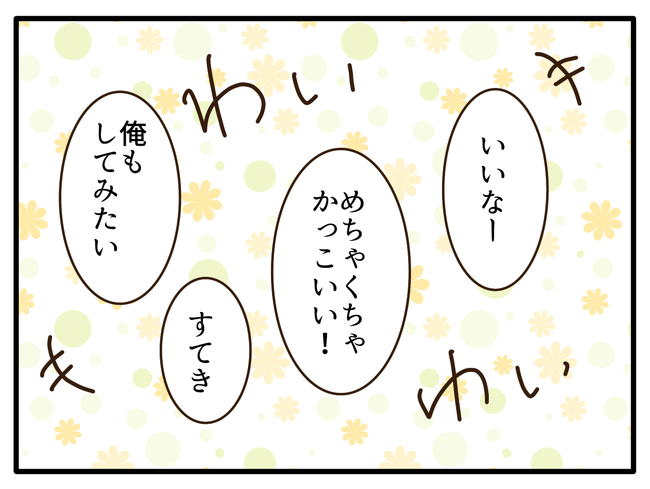 いいなー
めちゃくちゃ
かっこいい！
すてき
俺も
してみたい
わいき
わいき